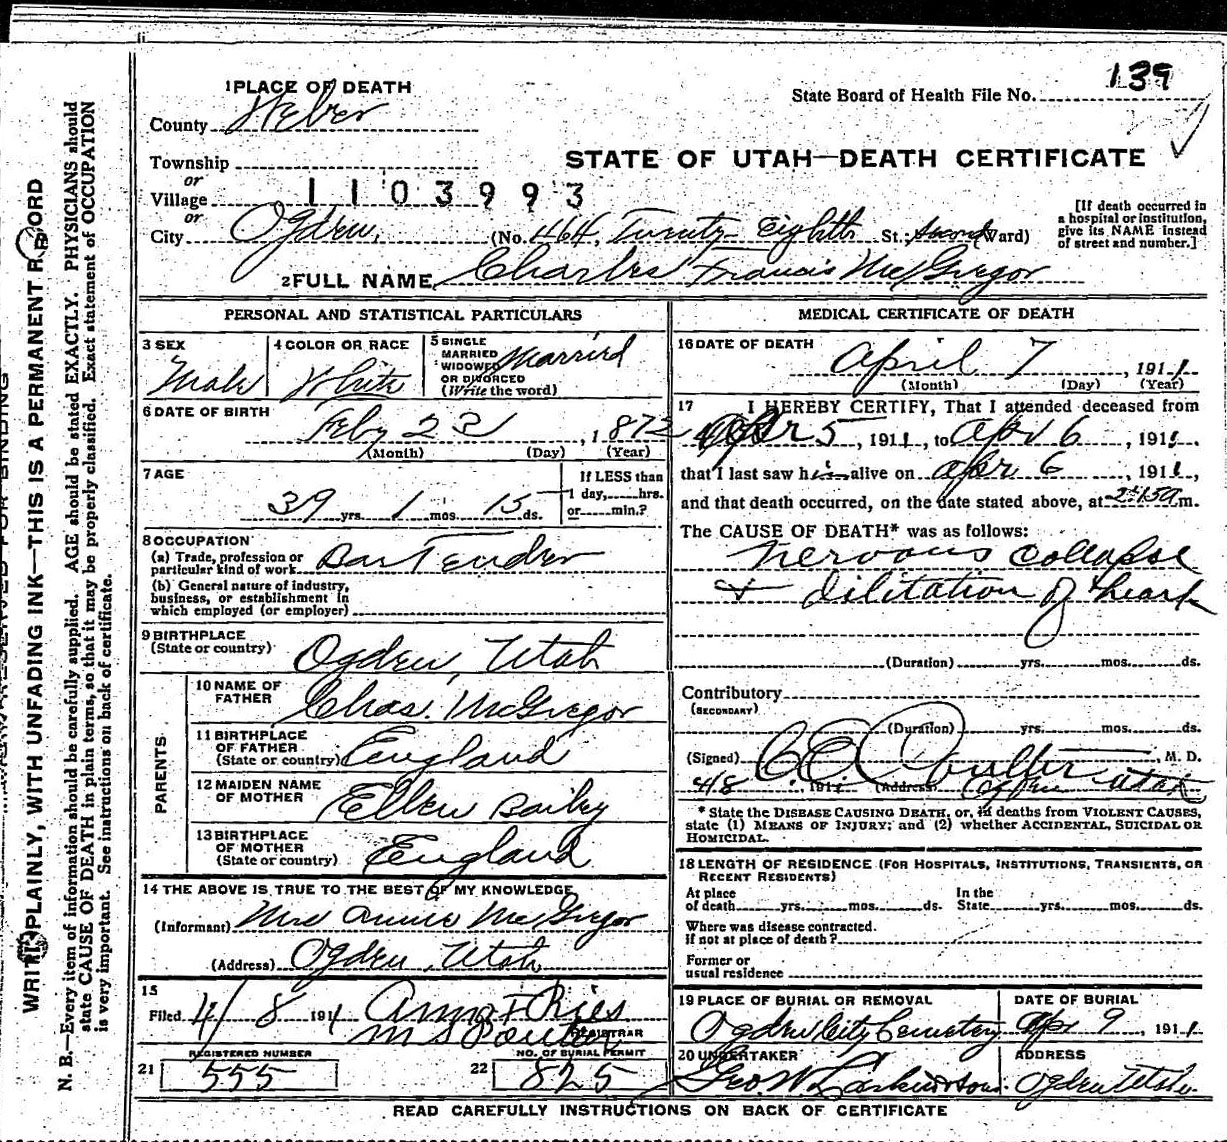 139
1 PLACE OF DEATH
State Board of Health File No.
County Weber
STATE OF UTAH—DEATH CERTIFICATE
Township
or
Village 1103993
or
City Ogden, (No. 464, Twenty Eighth St.; Second Ward)
[If death occurred in
a hospital or institution,
give its NAME instead
of street and number.]
2 FULL NAME Charles Francis McGregor
PERSONAL AND STATISTICAL PARTICULARS
3 SEX
Male
4 COLOR OR RACE
White
5 SINGLE
MARRIED
WIDOWED
OR DIVORCED
(Write the word)
Married
6 DATE OF BIRTH
Feby 23, 1872
(Month) (Day) (Year)
7 AGE
39 yrs. 1 mos. 15 ds.
If LESS than
1 day, hrs.
or min.?
8 OCCUPATION
(a) Trade, profession or
particular kind of work Bar Tender
(b) General nature of industry,
business, or establishment in
which employed (or employer)
9 BIRTHPLACE
(State or country) Ogden, Utah
PARENTS
10 NAME OF
FATHER Chas. McGregor
11 BIRTHPLACE
OF FATHER
(State or country) England
12 MAIDEN NAME
OF MOTHER Ellen Baily
13 BIRTHPLACE
OF MOTHER
(State or country) England
14 THE ABOVE IS TRUE TO THE BEST OF MY KNOWLEDGE
(Informant) Mrs Annie McGregor
(Address) Ogden, Utah
15
Filed 4/8 1911
REGISTRAR
21 REGISTERED NUMBER
555
22 NO. OF BURIAL PERMIT
825
MEDICAL CERTIFICATE OF DEATH
16 DATE OF DEATH
April 7, 1911
(Month) (Day) (Year)
17 I HEREBY CERTIFY, That I attended deceased from
Apr 5, 1911, to Apr 6, 1911.
that I last saw him alive on Apr 6, 1911,
and that death occurred, on the date stated above, at m.
The CAUSE OF DEATH* was as follows:
Nervous collapse
+ dilitation of heart
(Duration) yrs. mos. ds.
Contributory
(SECONDARY)
(Duration) yrs. mos. ds.
(Signed) M. D.
4/8 191 (Address) Ogden Utah
* State the DISEASE CAUSING DEATH, or, in deaths from VIOLENT CAUSES,
state (1) MEANS OF INJURY; and (2) whether ACCIDENTAL, SUICIDAL OR
HOMICIDAL.
18 LENGTH OF RESIDENCE (FOR HOSPITALS, INSTITUTIONS, TRANSIENTS, OR
RECENT RESIDENTS)
At place
of death yrs. mos. ds.
In the
State yrs. mos. ds.
Where was disease contracted.
if not at place of death?
Former or
usual residence
19 PLACE OF BURIAL OR REMOVAL
Ogden City Cemetery
DATE OF BURIAL
Apr 9, 1911
20 UNDERTAKER
Geo. W. Larkin & Sons
ADDRESS
Ogden Utah
READ CAREFULLY INSTRUCTIONS ON BACK OF CERTIFICATE
PLAINLY, WITH UNFADING INK—THIS IS A PERMANENT RECORD
N. B.—Every item of information should be carefully supplied. AGE should be stated EXACTLY. PHYSICIANS should
state CAUSE OF DEATH in plain terms, so that it may be properly classified. Exact statement of OCCUPATION
is very important. See instructions on back of certificate.